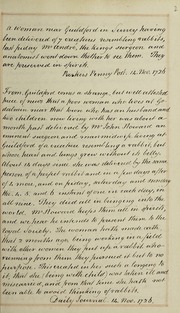 a woman near Guildford in Surrey having
been delivered of 7 creatures resembling rabbits,
last friday Mr. the Kings surgeon and
anatomist went down thither to see them. They
are preserved in spirits.
Parkers Penny Post. 14 Nov. 1726
From Guildford comes a strange, but well attested
piece of news that a poor woman who lives at
Godalmin near that town who has an husband and
two children now living with her was about a
month past delivered by Mr John Howard an
eminent surgeon and man midwife living at
Guildford of a creature resembling a rabbit, but
whose heart and lungs grew without its belly.
About 14 days since she was delivered by the same
person of a perfect rabbit and in a few days after
of 4 more, and on friday, saturday and sunday
the 4, 5 and 6 instant of one in each day, in
all nine. They died all in bringing into the
world. Mr Howard keeps them all in spirits,
and we hear he intends to present them to the
Royal Society. The woman hath made oath
that 2 months ago, being working in a field
with other women they put up a rabbit who
running from them they pursued it but to no
purpose. This created in her such a longing to
it, that she (being with child) was taken ill and
miscarried, and from that time she hath not
been able to avoid thinking of rabbits.
Daily Journal. 14 Nov. 1726.